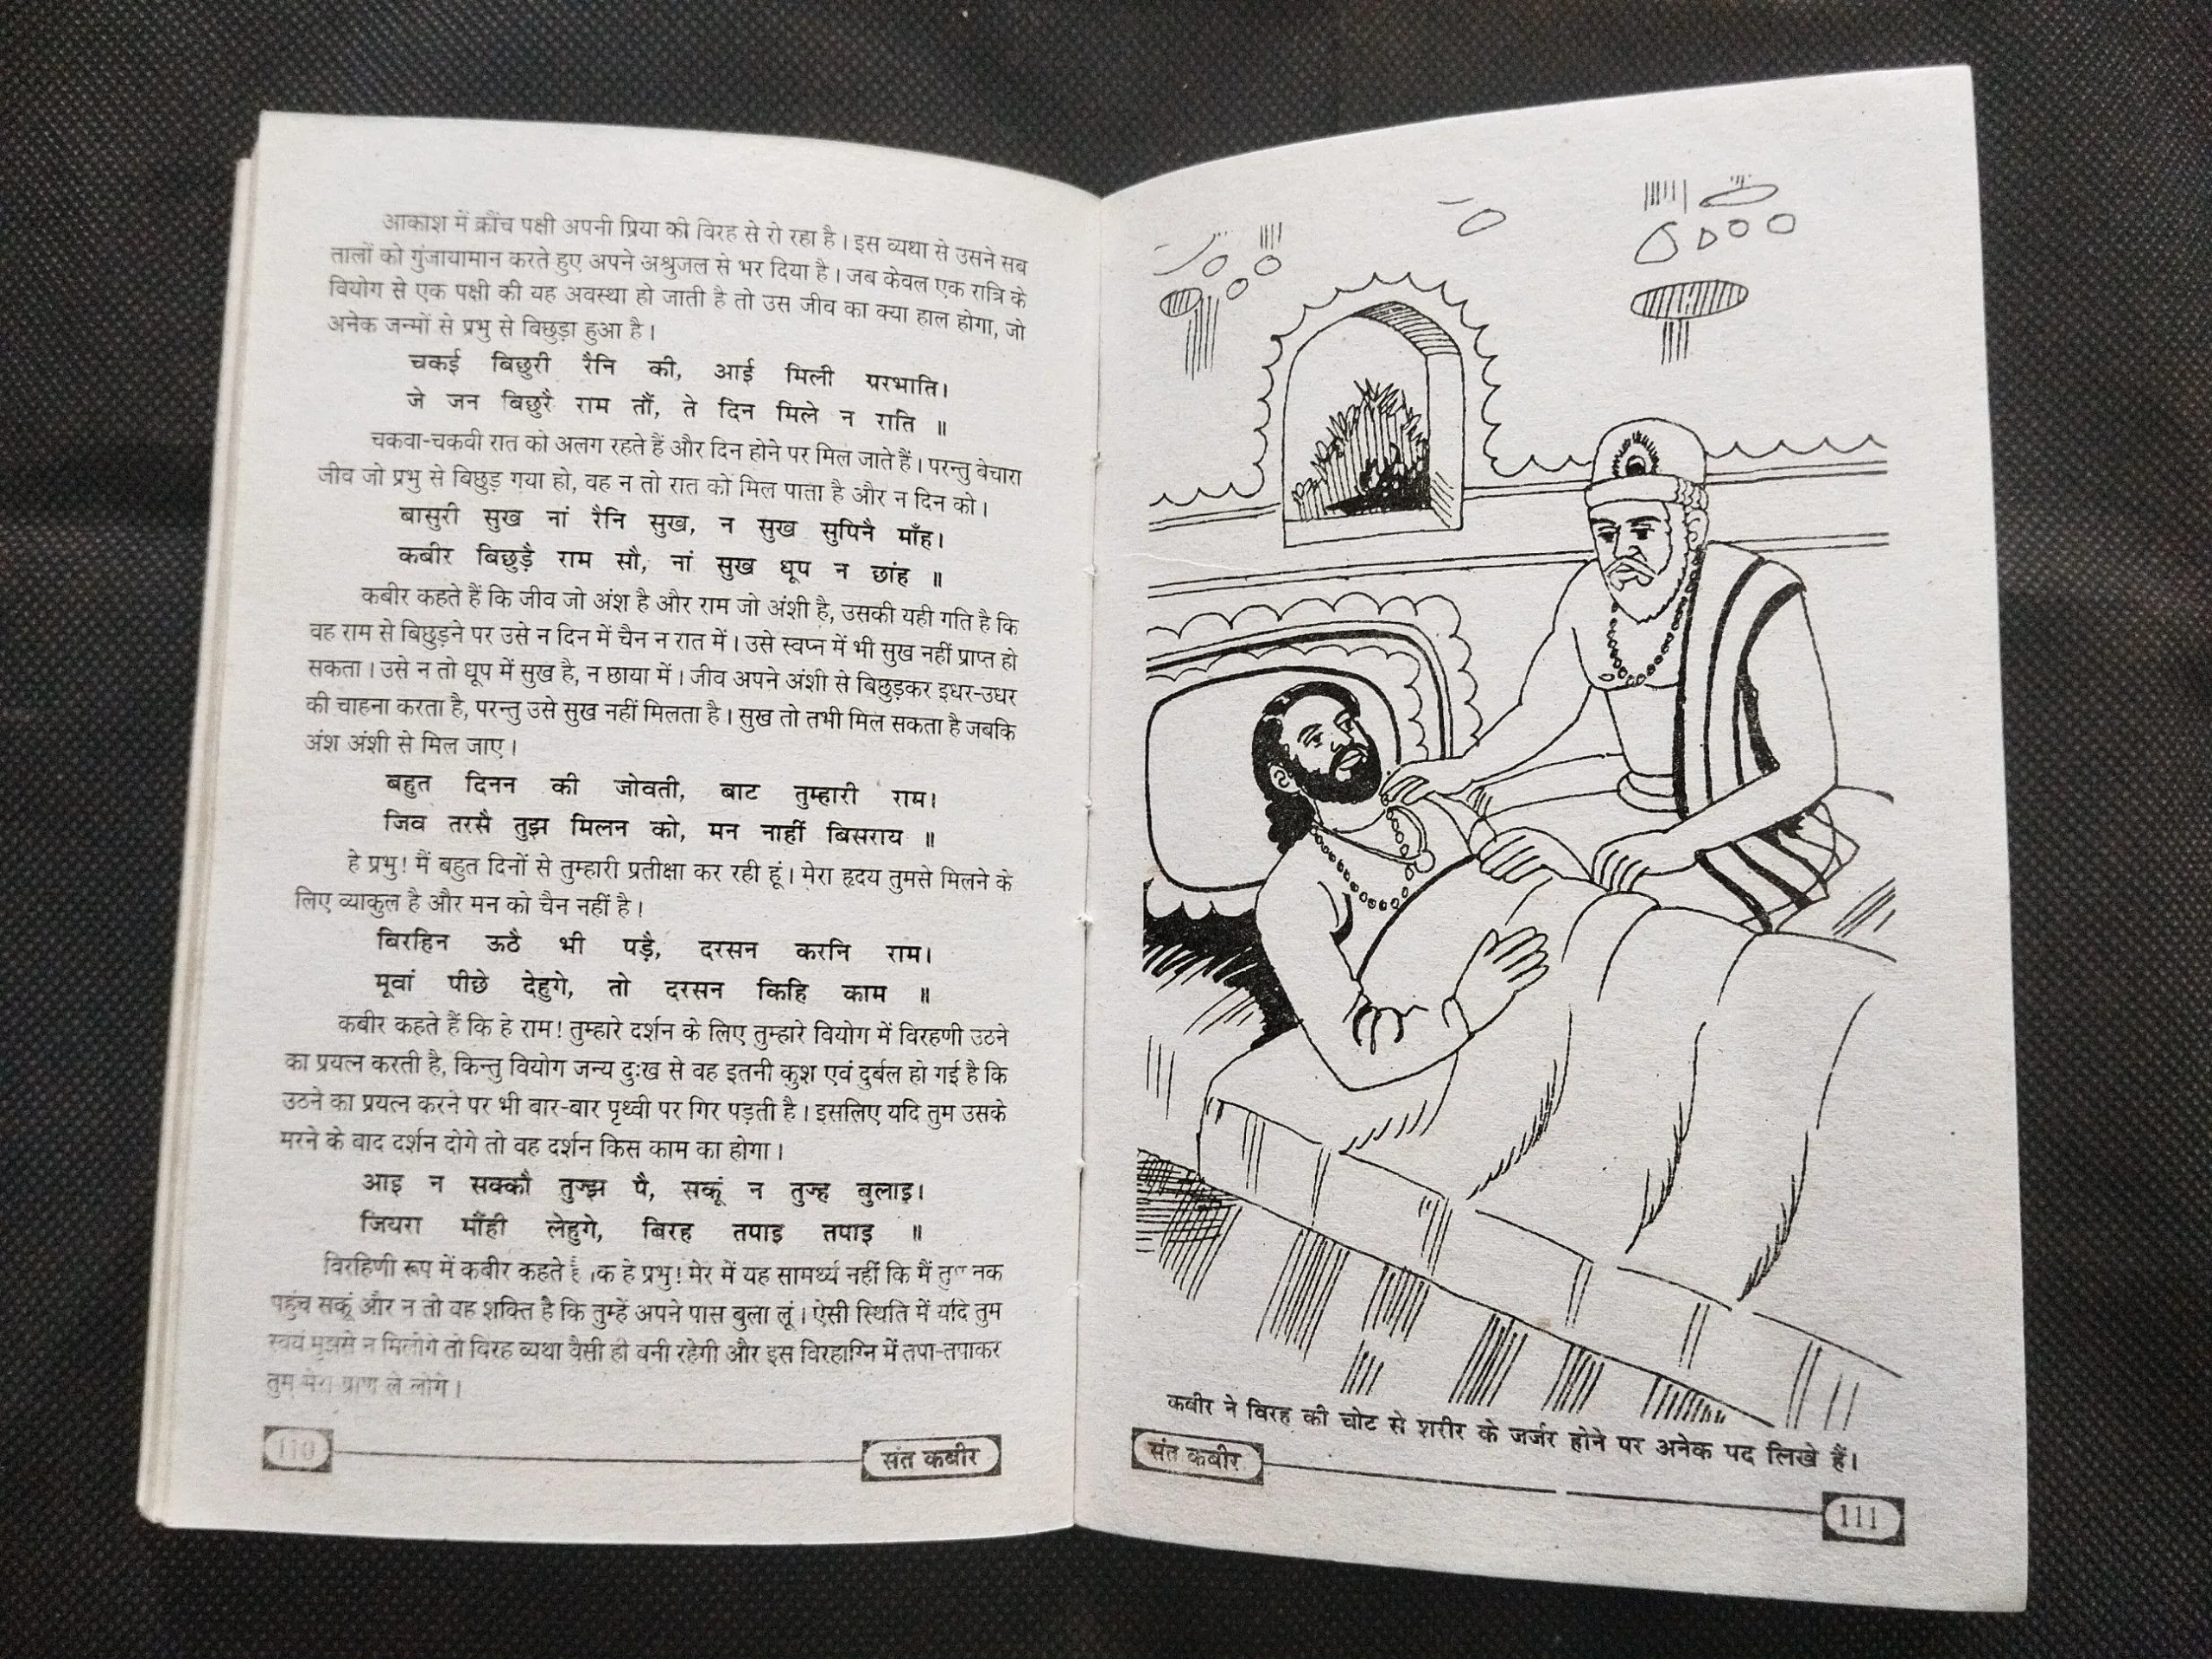 आकाश में क्रौंच पक्षी अपनी प्रिया की विरह से रो रहा है। इस व्यथा से उसने सब
तालों को गुंजायामान करते हुए अपने अश्रुजल से भर दिया है। जब केवल एक रात्रि के
वियोग से एक पक्षी की यह अवस्था हो जाती है तो उस जीव का क्या हाल होगा, जो
अनेक जन्मों से प्रभु से बिछुड़ा हुआ है।
चकई बिछुरी रैनि की, आई मिली परभाति।
जे जन बिछुरै राम तौं, ते दिन मिले न राति ॥
चकवा-चकवी रात को अलग रहते हैं और दिन होने पर मिल जाते हैं। परन्तु बेचारा
जीव जो प्रभु से बिछुड़ गया हो, वह न तो रात को मिल पाता है और न दिन को।
बासुरी सुख नां रैनि सुख, न सुख सुपिनै माँह।
कबीर बिछुड़ै राम सौ, नां सुख धूप न छांह ॥
कबीर कहते हैं कि जीव जो अंश है और राम जो अंशी है, उसकी यही गति है कि
वह राम से बिछुड़ने पर उसे न दिन में चैन न रात में। उसे स्वप्न में भी सुख नहीं प्राप्त हो
सकता। उसे न तो धूप में सुख है, न छाया में। जीव अपने अंशी से बिछुड़कर इधर-उधर
की चाहना करता है, परन्तु उसे सुख नहीं मिलता है। सुख तो तभी मिल सकता है जबकि
अंश अंशी से मिल जाए।
बहुत दिनन की जोवती, बाट तुम्हारी राम।
जिव तरसै तुझ मिलन को, मन नाहीं बिसराय ॥
हे प्रभु! मैं बहुत दिनों से तुम्हारी प्रतीक्षा कर रही हूं। मेरा हृदय तुमसे मिलने के
लिए व्याकुल है और मन को चैन नहीं है।
बिरहिन ऊठै भी पड़ै, दरसन करनि राम।
मूवां पीछे देहुगे, तो दरसन किहि काम ॥
कबीर कहते हैं कि हे राम! तुम्हारे दर्शन के लिए तुम्हारे वियोग में विरहणी उठने
का प्रयत्न करती है, किन्तु वियोग जन्य दुःख से वह इतनी कुश एवं दुर्बल हो गई है कि
उठने का प्रयत्न करने पर भी बार-बार पृथ्वी पर गिर पड़ती है। इसलिए यदि तुम उसके
मरने के बाद दर्शन दोगे तो वह दर्शन किस काम का होगा।
आइ न सक्कौ तुज्झ पै, सकूं न तुज्ह बुलाइ।
जियरा मौंही लेहुगे, बिरह तपाइ तपाइ ॥
विरहिणी रूप में कबीर कहते हे प्रभु! मेर में यह सामर्थ्य नहीं कि मैं
पहुंच सकूं और न तो वह शक्ति है कि तुम्हें अपने पास बुला लूं। ऐसी स्थिति में यदि तुम
स्वयं मुझसे न मिलोगे तो विरह व्यथा वैसी ही बनी रहेगी और इस विरहाग्नि में तपा-तपाकर
तुम प्राण ले लोगे।
110 संत कबीर
कबीर ने विरह की चोट से शरीर के जर्जर होने पर अनेक पद लिखे हैं।
संत कबीर 111